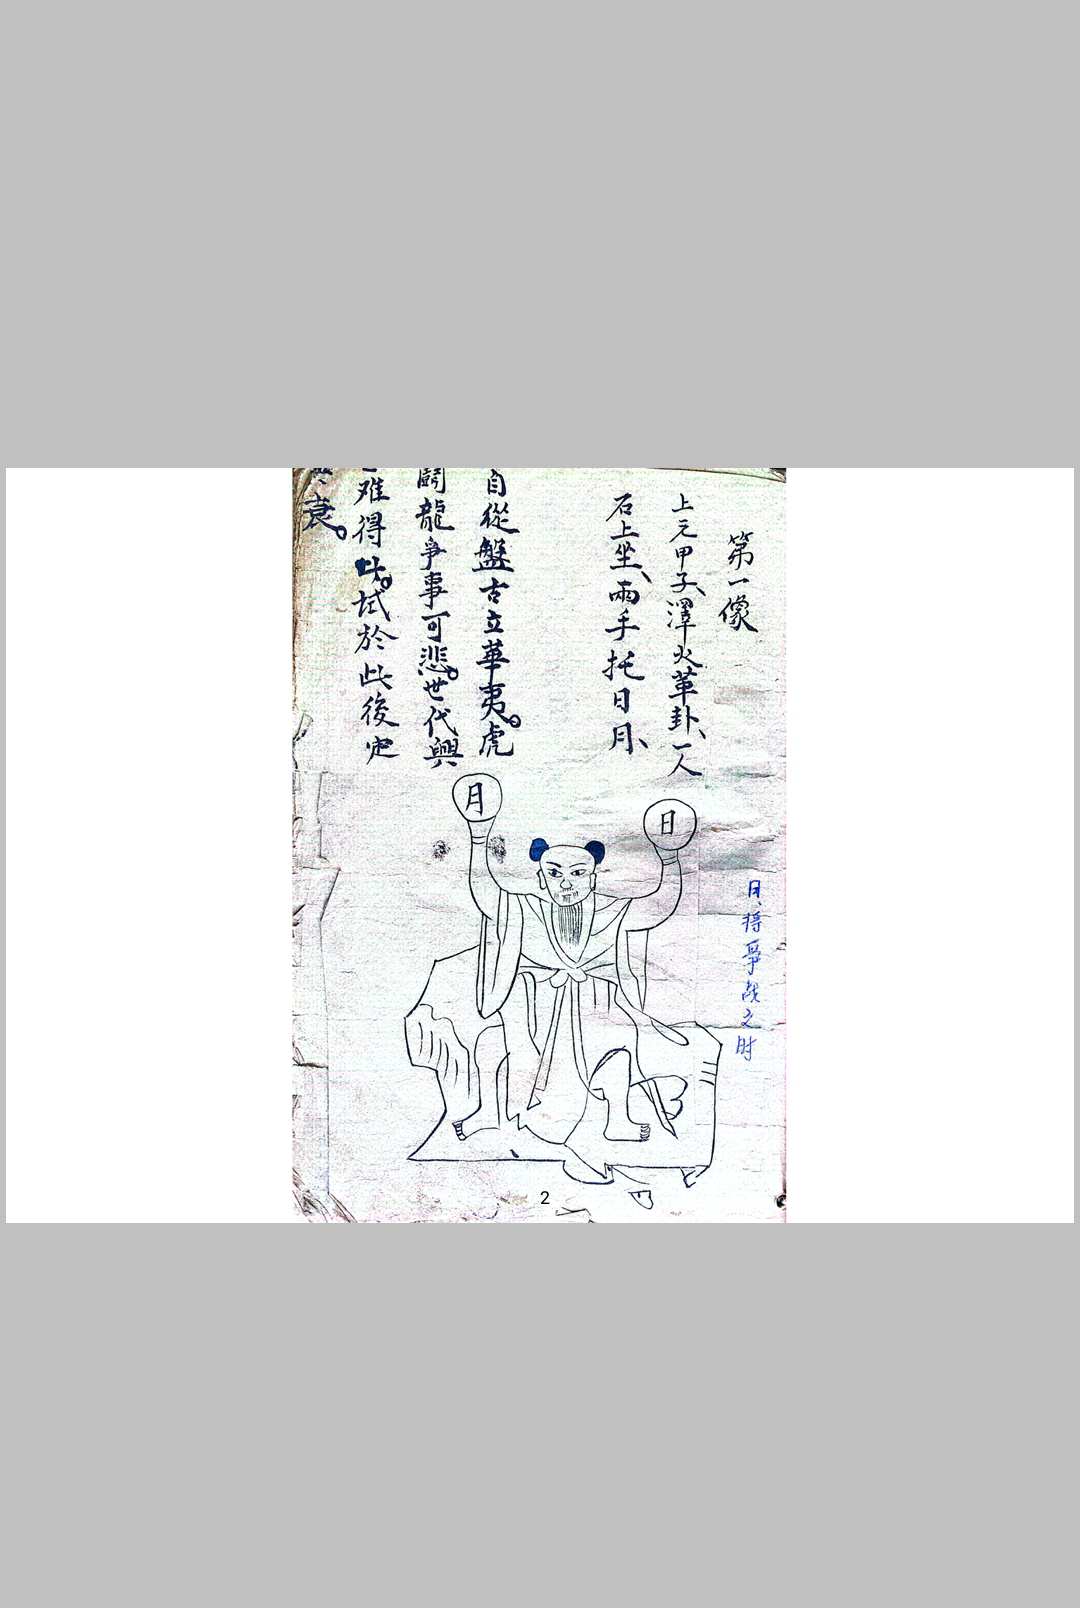 第一像
上元甲子、澤火革卦、一人
石上坐、兩手托日月、
自從盤古立華夷。虎
鬪龍爭事可悲。世代興
难得 試於此後定
衰。
月
日
爭战之时
2